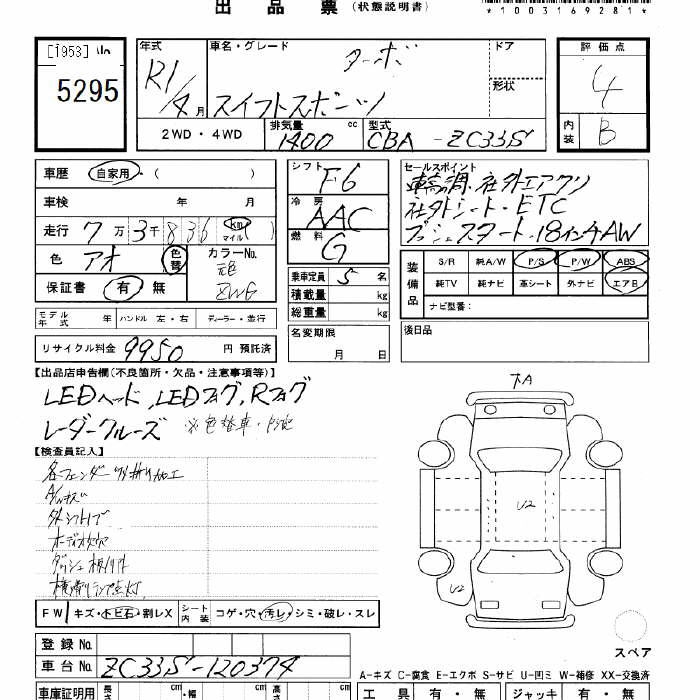 出品票 (状態説明書)
*1003169281*
[1953]
5295
年式 R1/4月
車名・グレード ターボ
スイフトスポーツ
ドア
形状
評価点 4
内装 B
2WD・4WD
排気量 1400 cc
型式 CBA-ZC33S
車歴 自家用・( )
車検 年 月
走行 7万3千836 km マイル ( )
色 アオ 色替
カラーNo. 元色 ZWG
保証書 有 無
シフト F6
冷房 AAC
燃料 G
乗車定員 5 名
積載量 kg
総重量 kg
セールスポイント
車高調 社外エアクリ
社外シート・ETC
プッシュスタート・18インチAW
装備品
S/R 純A/W P/S P/W ABS
純TV 純ナビ 革シート 外ナビ エアB
ナビ型番:
モデル年式 年 ハンドル 左・右 ディーラー・並行
名変期限 月 日
後日品
リサイクル料金 9950 円 預託済
【出品店申告欄(不良箇所・欠品・注意事項等)】
LEDヘッド、LEDフォグ、Rフォグ
レーダークルーズ ※色替車・
【検査員記入】
各フェンダー 折り加工
A/Wキズ
外シフトノブ
オーディオ欠
ダッシュ
横滑りランプ点灯
下A
U2
U2
スペア
FW キズ・トビ石・割レX
シート内装 コゲ・穴・汚レ・シミ・破レ・スレ
登録No.
車台No. ZC33S-120374
A-キズ C-腐食 E-エクボ S-サビ U-凹ミ W-補修 XX-交換済
車庫証明用 長さ cm ・幅 cm 高さ cm
工具 有・無 ジャッキ 有・無